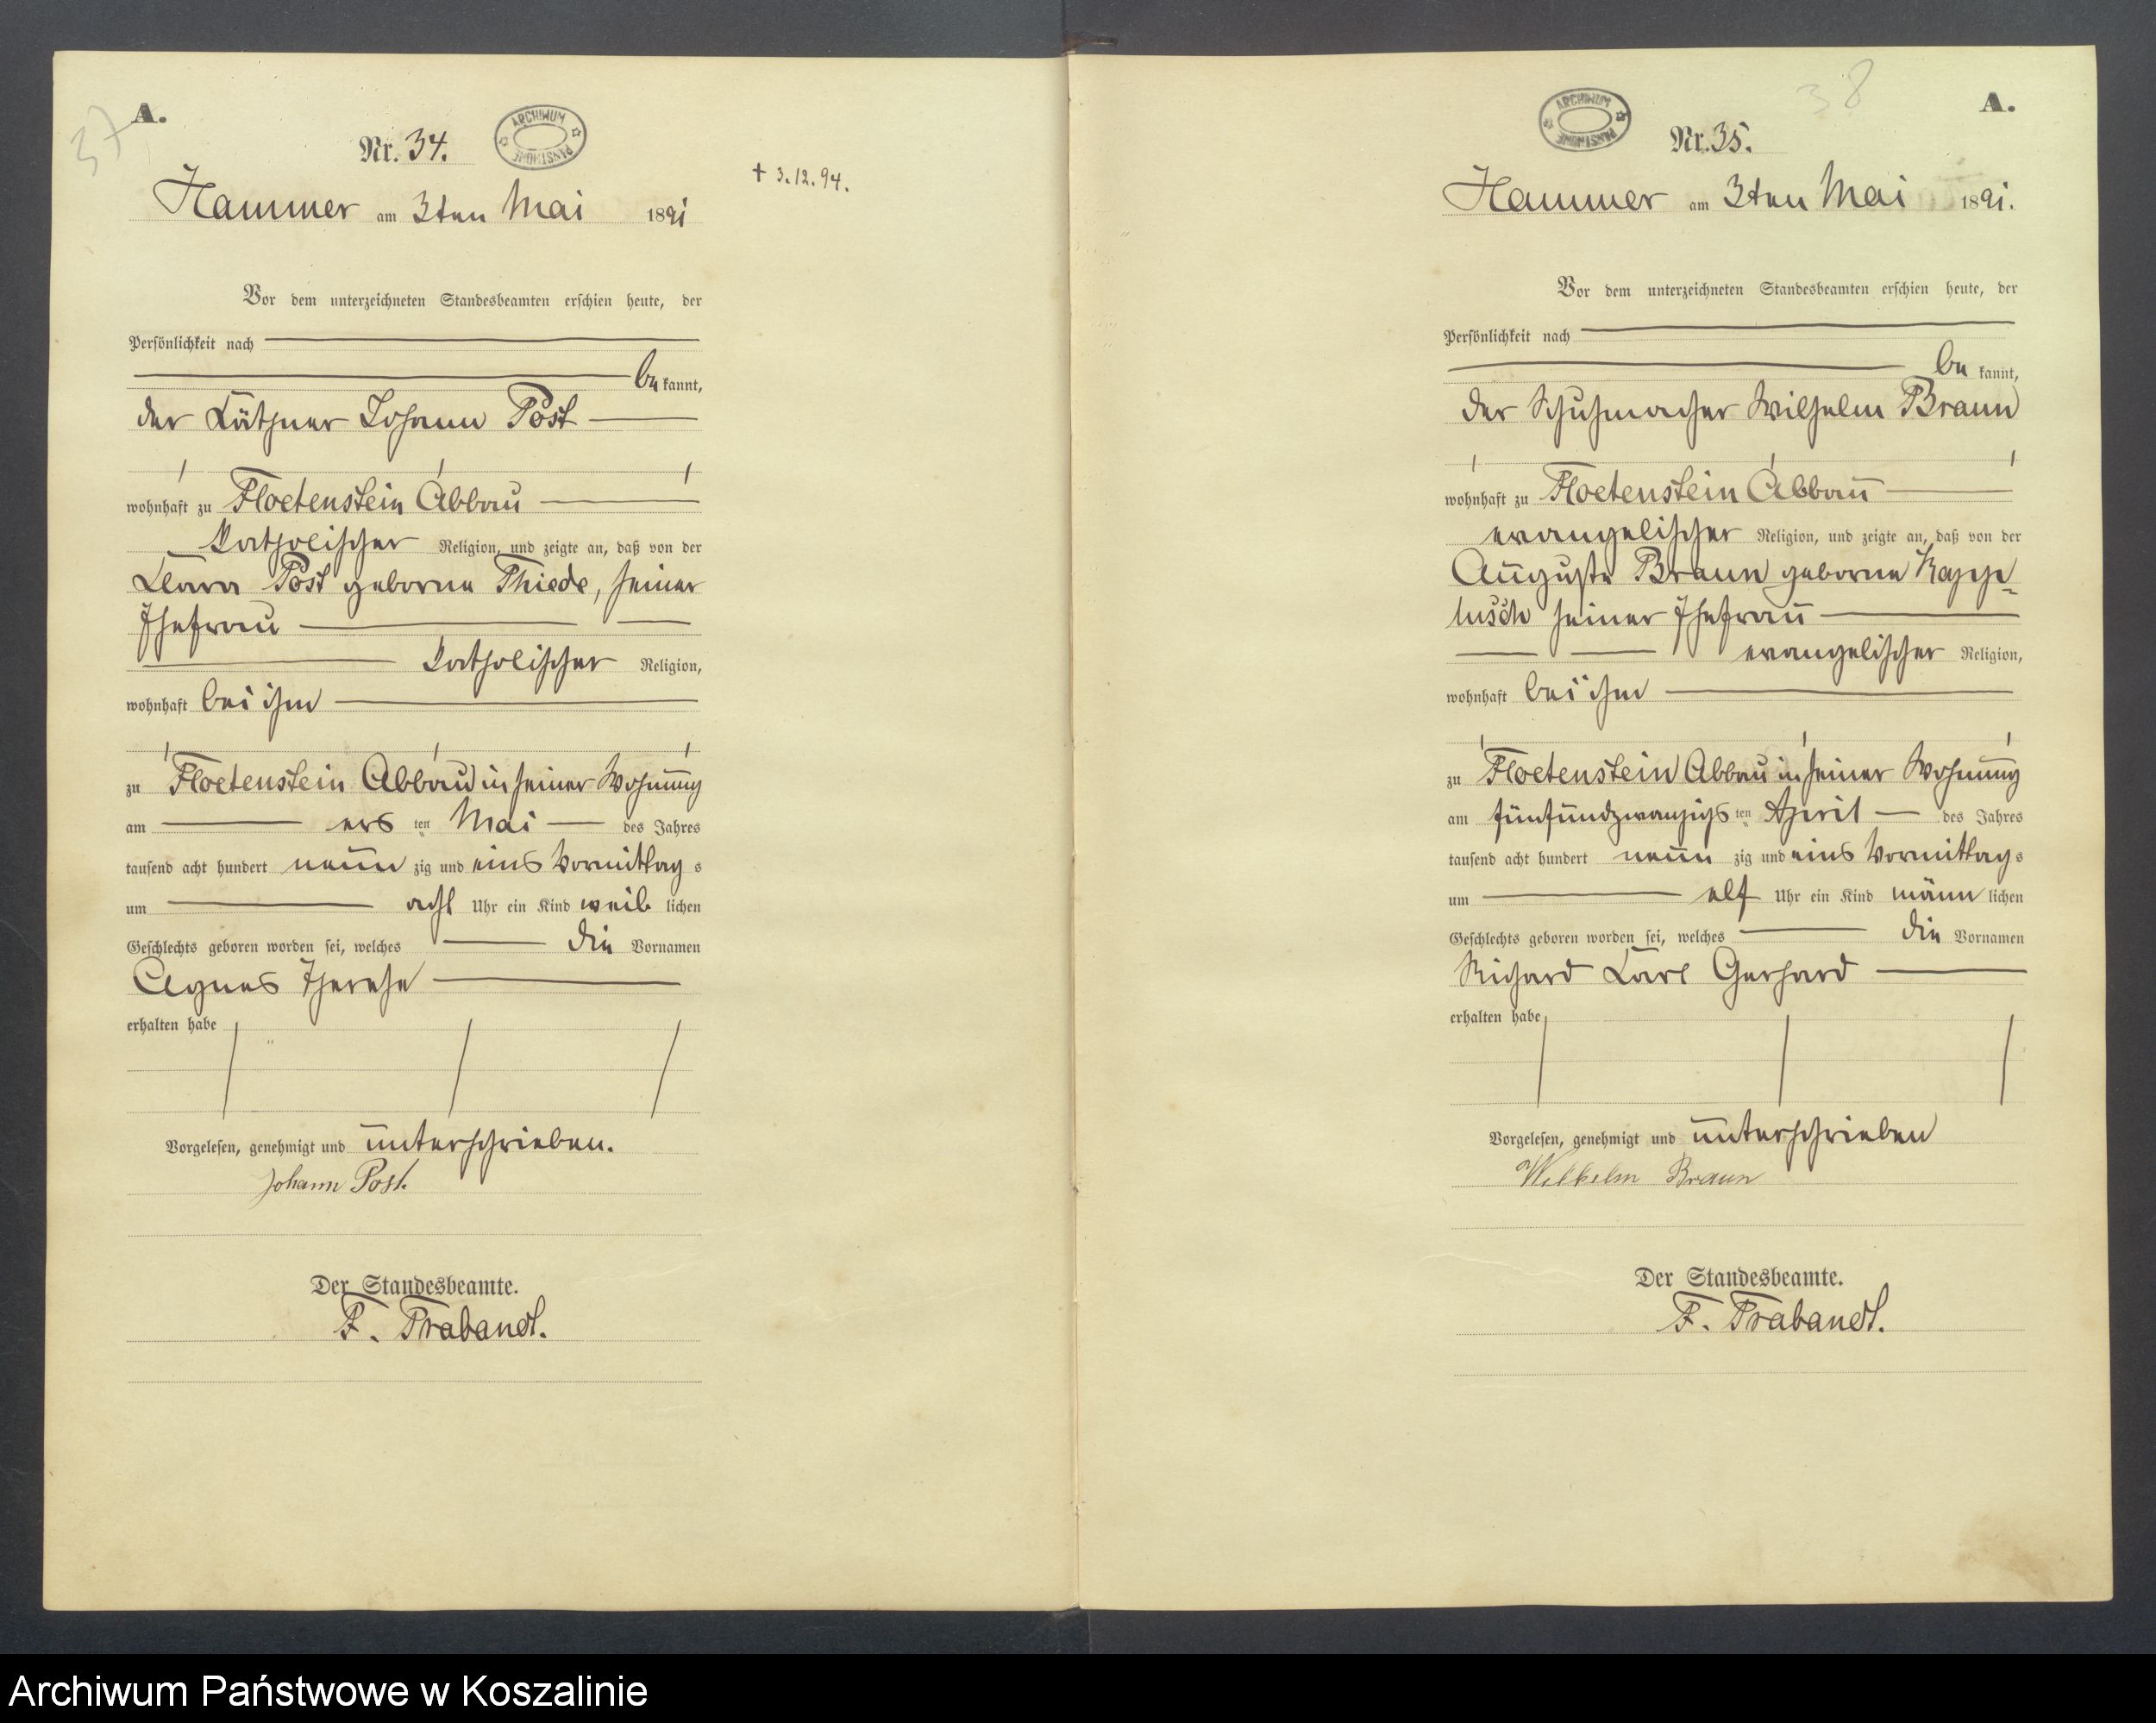 37
A.
Nr. 34.
ARCHIWUM PAŃSTWOWE
+ 3.12.94.
Hammer am 3ten Mai 1891
Vor dem unterzeichneten Standesbeamten erschien heute, der
Persönlichkeit nach
be kannt,
der Käthner Johann Post
wohnhaft zu Floetenstein Abbau
katholischer Religion, und zeigte an, daß von der
Clara Post geborne Thiede, seiner
Ehefrau
katholischer Religion,
wohnhaft bei ihm
zu Floetenstein Abbau in seiner Wohnung
am ers ten Mai des Jahres
tausend acht hundert neun zig und eins Vormittag s
um acht Uhr ein Kind weib lichen
Geschlechts geboren worden sei, welches die Vornamen
Agnes Therese
erhalten habe
Vorgelesen, genehmigt und unterschrieben.
Johann Post.
Der Standesbeamte.
F. Trabandt.
38
A.
ARCHIWUM PAŃSTWOWE
Nr. 35.
Hammer am 3ten Mai 1891.
Vor dem unterzeichneten Standesbeamten erschien heute, der
Persönlichkeit nach
be kannt,
der Schuhmacher Wilhelm Braun
wohnhaft zu Floetenstein Abbau
evangelischer Religion, und zeigte an, daß von der
Auguste Braun geborne Kappe-
lusch seiner Ehefrau
evangelischer Religion,
wohnhaft bei ihm
zu Floetenstein Abbau in seiner Wohnung
am fünfundzwanzigs ten April des Jahres
tausend acht hundert neun zig und eins Vormittag s
um elf Uhr ein Kind männ lichen
Geschlechts geboren worden sei, welches die Vornamen
Richard Carl Gerhard
erhalten habe
Vorgelesen, genehmigt und unterschrieben
Wilhelm Braun
Der Standesbeamte.
F. Trabandt.
Archiwum Państwowe w Koszalinie